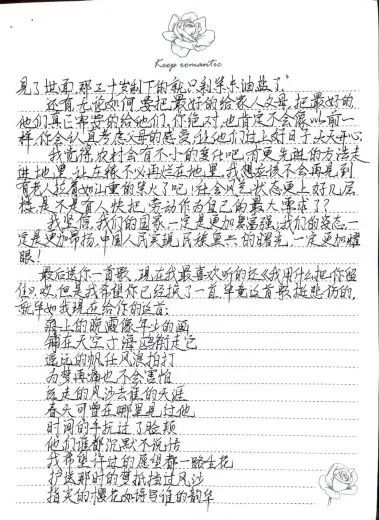 Keep romantic
见了世面,那三十岁剩下的就只剩柴米油盐了。
还有无论如何要把最好的给家人父母,把最好的
他们真正需要的给他们,你绝对,也肯定不会像以前一
样,你会认真考虑父母的感受,让他们过上好日子,天天开心。
我觉得农村会有不小的变化吧,有更先进的方法走
进地里,让庄稼不以再烂在地里,我想应该不会再见到
有老人拉着如山重的柴火了吧!社会风气状态更上好几层
楼,是不是有人快把劳动作为自己的最大享求了?
我坚信,我们的国家一定是更加繁荣富强,我们的姿态一
定是更加昂扬,中国人民实现民族复兴的曙光,一定更加耀
眼!
最后送你一首歌,现在我最喜欢听的是《我用什么把你留
住》,哎,但是我希望你已经换了一首,毕竟这首歌挺悲伤的,
就毕如我现在给你的这首:
海上的晚霞像年少的画
铺在天空等海鸥衔走它
遥远的帆任风浪拍打
为梦再痛也不会害怕
远走的风沙去谁的天涯
春天可曾在哪里见过他
时间的手抚过了脸颊
他们谁都沉默不说话
我希望许过的愿望都一路生花
护送那时的梦抵挡过风沙
指尖的樱花如诗写谁的韵华